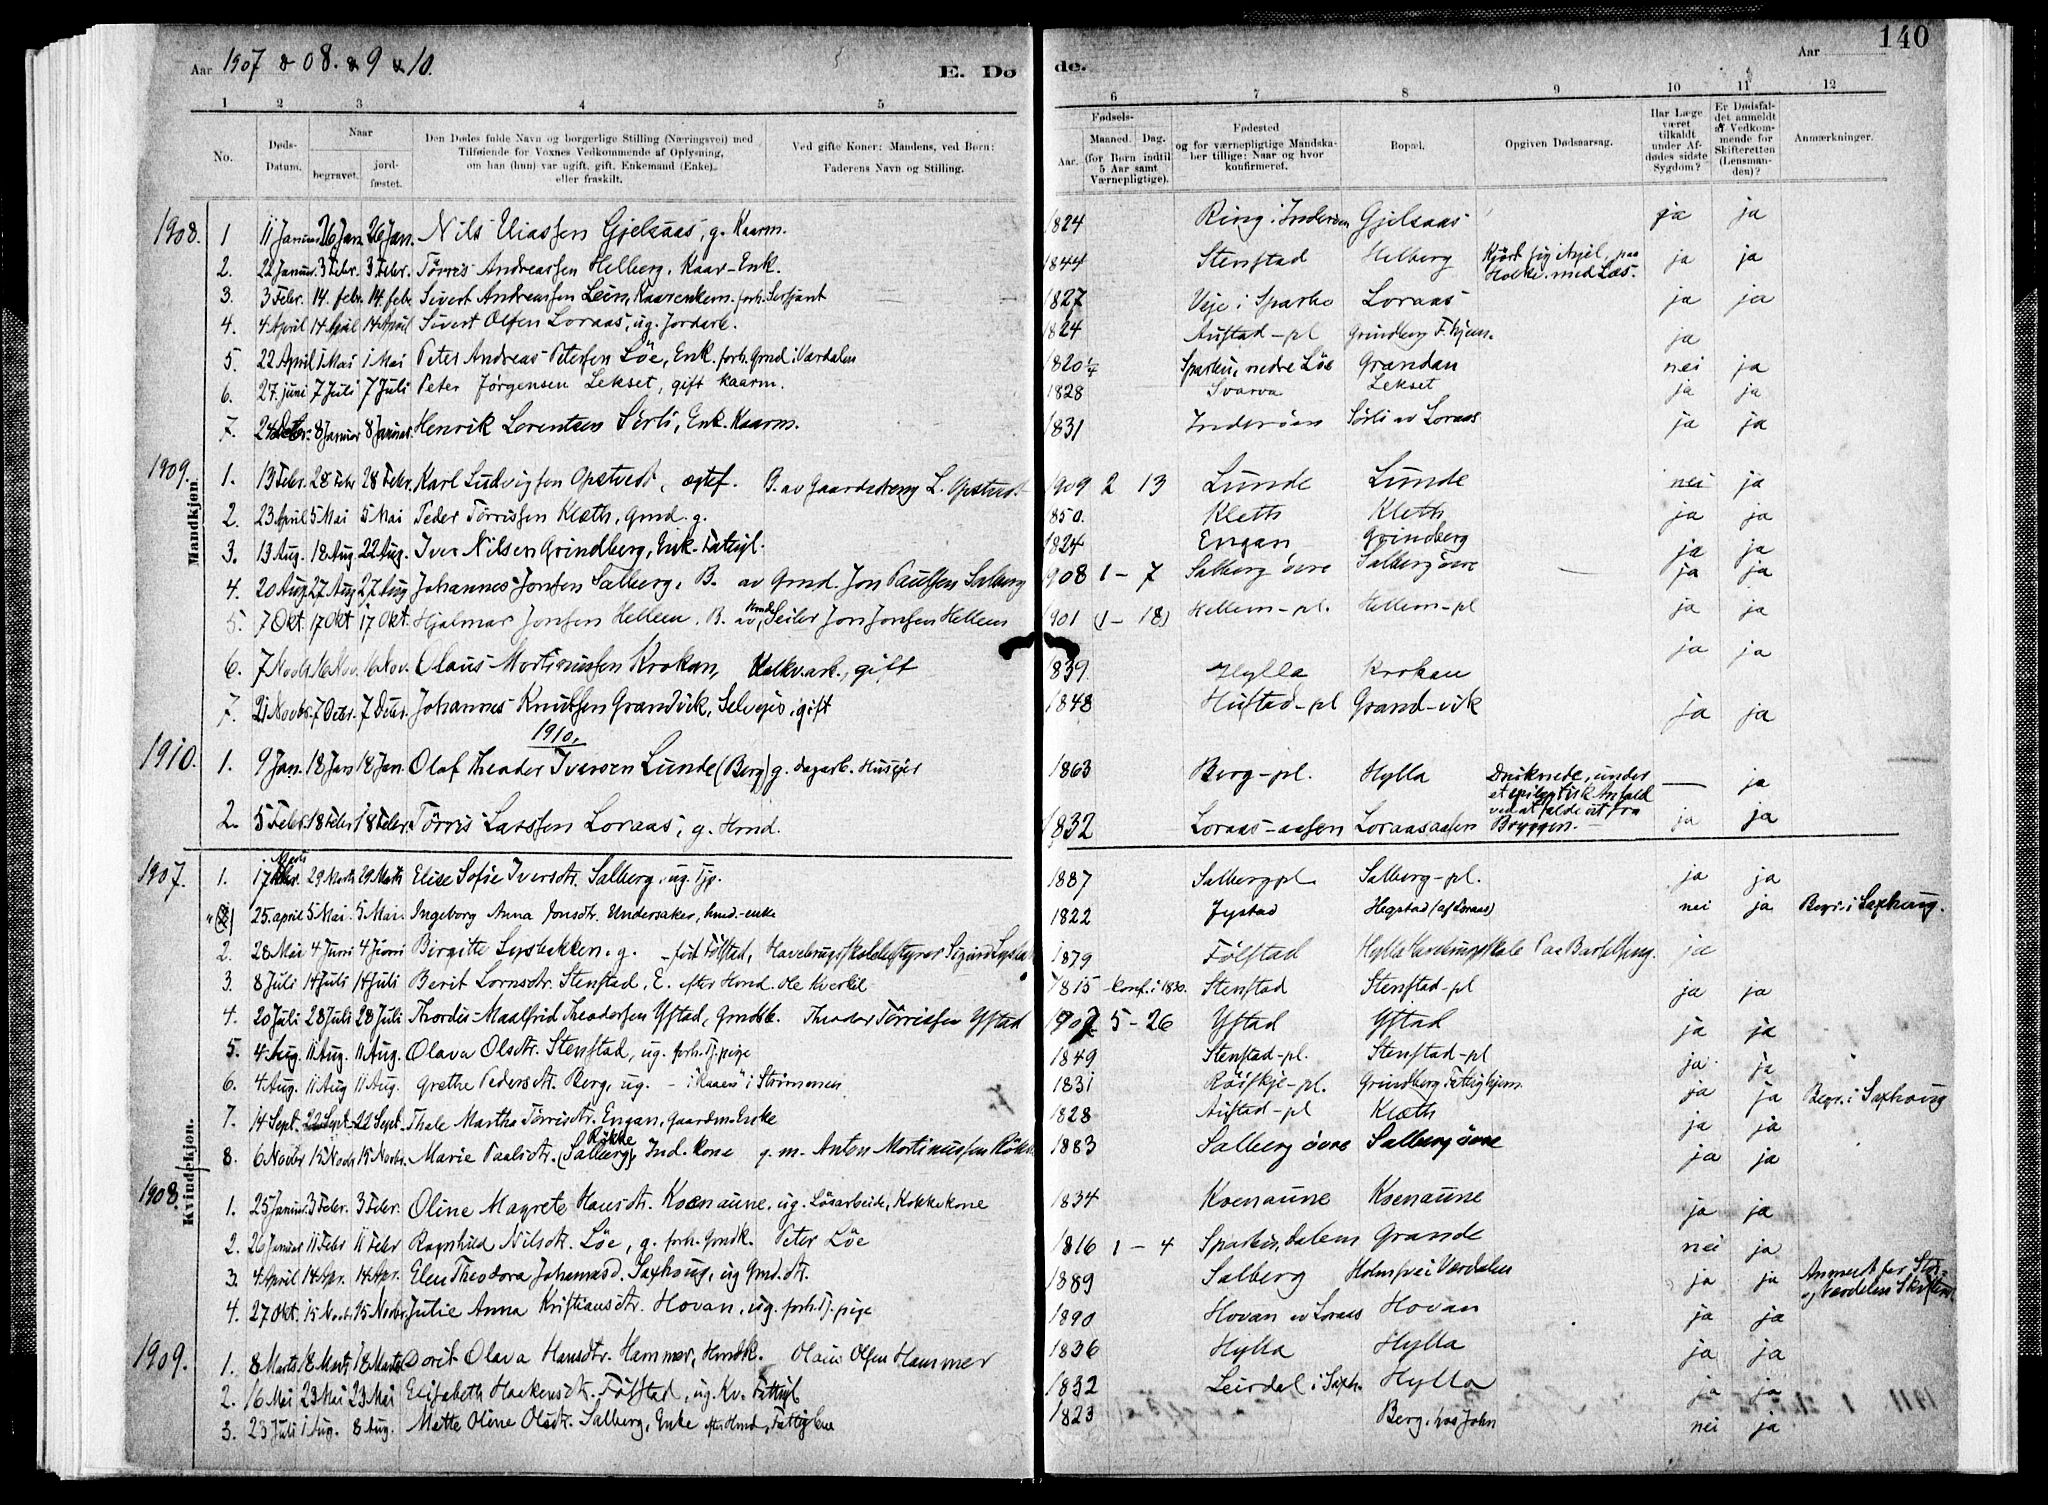 140
Aar 1907 & 08. & 9 & 10.
E. Dø
de.
Aar
1 2 3 4 5 6 7 8 9 10 11 12
No.
Døds-Datum.
Naar
begravet.
jord-fæstet.
Den Dødes fulde Navn og borgerlige Stilling (Næringsvei) med
Tilføiende for Voxnes Vedkommende af Oplysning,
om han (hun) var ugift, gift, Enkemand (Enke)
eller fraskilt.
Ved gifte Koner: Mandens, ved Børn:
Faderens Navn og Stilling.
Fødsels-
Aar.
Maaned. Dag.
(for Børn indtil
5 Aar samt
Værnepligtige).
Fødested
og for værnepligtige Mandska-
ber tillige: Naar og hvor
konfirmeret.
Bopæl.
Opgiven Dødsaarsag.
Har Læge
været
tilkaldt
under Af-
dødes sidste
Sygdom?
Er Dødsfal-
det anmeldt
af Vedkom-
mende for
Skifteretten
(Lensman-
den)?
Anmærkninger.
Mandkjøn.
1908. 1 11 Januar 26 Jan. 26 Jan. Nils Eliassen Gjelsaas, g. Kaarm. 1824 Ring i Inderøen Gjelsaas ja ja
2. 22 Januar. 3 Febr. 3 Febr. Tørris Andreassen Helberg, Kaar-Enk. 1844 Stenstad Helberg Kjørt sig ihjel, paa Holke. med Læs. ja ja
3. 3 Febr. 14. febr. 14. febr. Sivert Andreassen Lein, Kaarenkem. forh. Sersjant 1827 Veje i Sparbo Loraas ja ja
4. 4 April 14 April 14 April Sivert Olsen Loraas, ug. Jordarb. 1824 Austad-pl Grindberg F.hjem. ja
5. 22 April 1 Mai 1 Mai Peter Andreas Petersen Löe, Enk. forh. Gmd i Værdalen 1820 Sparbu, nedre Löe Grandan nei ja
6. 27. juni 7 Juli 7 Juli Peter Jørgensen Lekset, gift kaarm. 1828 Svarva Lekset ja ja
7. 24 Decbr. 8 Januar 8 Januar. Henrik Lorentsen Sørli, Enk. Kaarm. 1831 Inderöen Sørli av Loraas ja ja
1909. 1. 13 Febr. 28 Febr 28 Febr. Karl Ludvigsen Opstvedt, ægtef. B. av Gaardsdreng L. Opstvedt 1909 2 13 Lunde Lunde nei ja
2. 23 April 5 Mai 5 Mai Peder Tørrissen Klæth, Gmd. g. 1850. Kleth Kleth ja ja
3. 13 Aug. 18 Aug. 22 Aug. Iver Nilsen Grindberg, Enk. Fattigl. 1824 Engan Grindberg ja ja
4. 20 Aug 27 Aug 27 Aug Johannes Jonsen Salberg, B. av Gmd. Jon Paulsen Salberg 1908 1 - 7 Salberg övre Salberg övre ja ja
5. 7 Okt. 17 Okt 17 Okt. Hjalmar Jonsen Hellem. B. av Hmd, Seiler Jon Jonsen Hellem 1901 (1 - 18) Hellem-pl. Hellem-pl ja ja
6. 7 Novb. 16 Nov. 16 Nov. Olaus Mortinussen Krokan, Kalkv.arb., gift 1839. Hylla Krokan ja ja
7. 21 Novbr. 7 Decbr. 7 Decbr. Johannes Knutsen Grandvik, Selvejer, gift 1848 Hustad-pl Grand-vik ja ja
1910.
1910. 1. 9 Jan. 18 Jan 18 Jan. Olaf Theodor Iversen Lunde (Berg) g. dagarb. Husejer 1863 Berg-pl. Hylla Druknede, under et epileptisk Anfald ved at falde ut fra Bryggen. — ja
2. 5 Febr. 18 Febr 18 Febr. Tørris Larssen Loraas, g. Hmd. 1832 Loraas-aasen Loraasaasen ja ja
Kvindekjøn.
1907. 1. 17 Marts 29 Marts 29 Marts Elise Sofie Iversdtr. Salberg, ug. Tjp. 1887 Salbergpl Salberg-pl. ja ja
25. april 5 Mai. 5 Mai. Ingeborg Anna Jonsdtr. Undersaker, hmd.-enke 1822 Jystad Hegstad (af Loraas) nei ja Begr. i Saxhaug.
2. 28 Mai 4 Juni 4 Juni Birgitte Lysbakken. g. - født Følstad, Havebrugsskolebestyrer Sigurd 1879 Følstad Hylla Havebrugsskole ja
3. 8 Juli 14 Juli 14 Juli Berit Lornsdtr. Stenstad, E. efter Hmd. Ole Kverkil 1815 - konf. i 1830. Stenstad Stenstad-pl ja ja
4. 20 Juli 28 Juli 28 Juli Thordis Maalfrid Theodorsen Ystad, Gmdsb. Theodor Tørrissen Ystad 1907 5 - 26 Ystad Ystad ja ja
5. 4 Aug. 11 Aug. 11 Aug. Olava Olsdtr. Stenstad, ug. forh. Tj. pige 1849 Stenstad-pl. Stenstad-pl ja. ja
6. 4 Aug. 11 Aug 11 Aug. Grethe Pedersdtr. Berg, ug. - i "Kaaen" i Strömmen 1831 Röiskje-pl. Grindberg Fattighjem. ja ja Begr. i Saxhaug
7. 14 Sept. 22 Sept. 22 Sept. Thale Martha Tørrisdtr. Engan, Gaardm. Enke 1828 Austad-pl Klæth ja ja
8. 6 Novbr 15 Novbr 15 Novbr. Marie Paalsdtr. (Salberg) Rökke Ind. kone g. m. Anton Mortinussen Rökke 1883 Salberg övre Salberg övre ja ja
1908. 1. 25 Januar. 3 Febr. 3 Febr. Oline Magrete Hansdtr. Kvenaune, ug. Lösarbeide, Kokkekone 1834 Kvenaune Kvenaune ja ja
2. 26 Januar 11 Febr 11 Febr Ragnhild Nilsdtr. Löe, g. forh. Gmdk. Peter Löe 1816 1 - 4 Sparbu, dalem Grande nei ja
3. 4 April 14 Apr. 14 Apr. Elen Theodora Johannesd. Saxhaug, ug Gmd.dtr. 1889 Salberg Holmsve i Værdalen ja ja
4. 27 Okt. 15 Novbr. 15 Novbr. Julie Anna Kristiansdtr. Hovan, ug. forh. Tj. pige 1890 Hovan av Loraas Hovan ja ja
1909. 1. 8 Marts 18 Marts 18 Marts Dorit Olava Hansdtr. Hammer, Hmdk. Olaus Olsen Hammer 1836 Hylla Hylla ja ja
2. 16 Mai 23 Mai 23 Mai Elisabeth Haakensdtr. Følstad, ug. Kv. Fattigl 1832 Leirdal i Saxh. Hylla ja ja
3. 23 Juli 1 Aug. 8 Aug. Mette Oline Olsdtr. Salberg, Enke efter Hmd, Fattiglem 1823 Berg, hos John nei ja